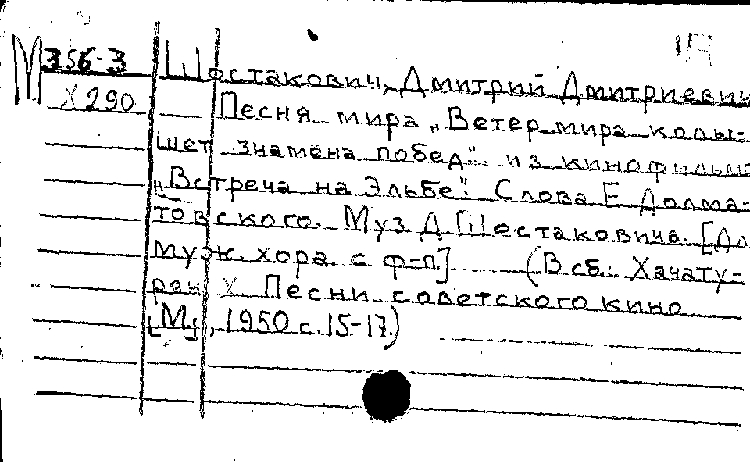 М 356-3 Шостакович, Дмитрий Дмитриевич
Х 290 Песня мира „Ветер мира колы-
шет знамена побед" из кинофильма
„Встреча на Эльбе". Слова Е Долма-
товского. Муз Д Шостаковича. [Дл
муж. хора с ф-п.] (В сб.: Хачату-
рян Х Песни советского кино
[М], 1950 с. 15-17.)